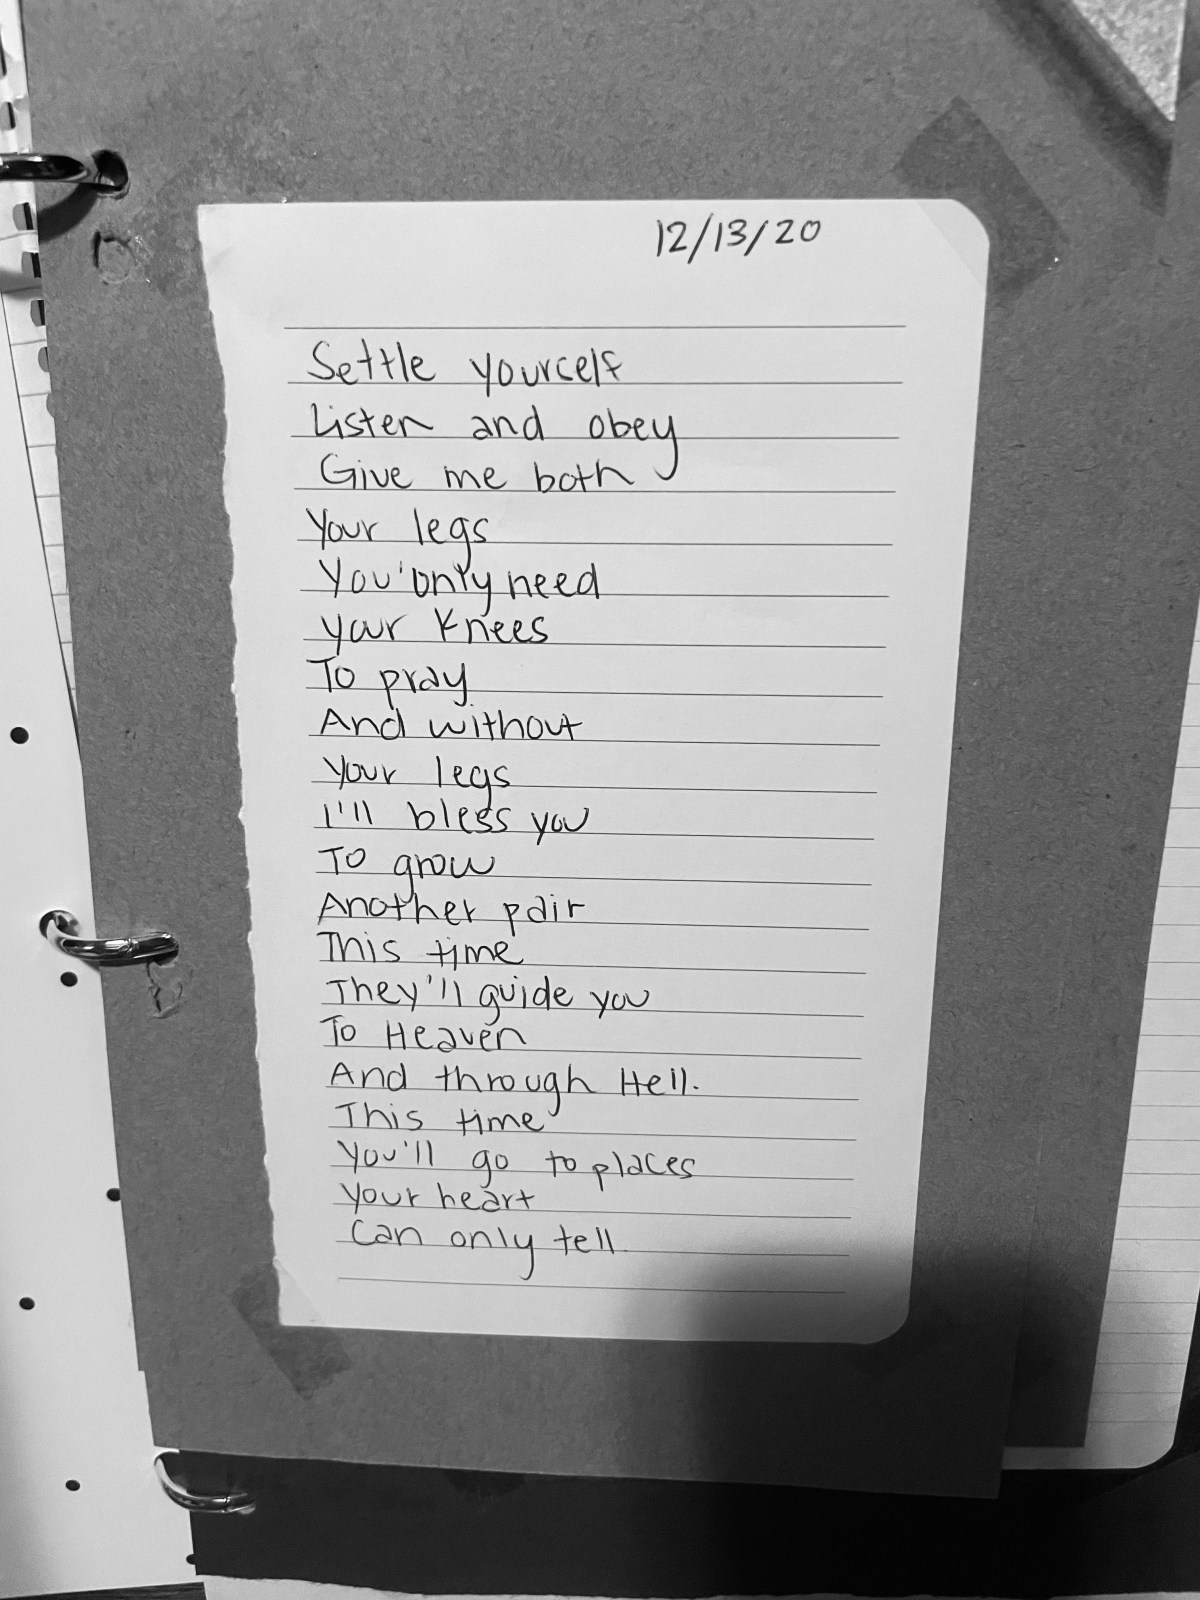 12/13/20
Settle yourself
Listen and obey
Give me both
Your legs
You only need
your knees
To pray
And without
Your legs
I'll bless you
To grow
Another pair
This time
They'll guide you
To Heaven
And through Hell.
This time
You'll go to places
Your heart
Can only tell.